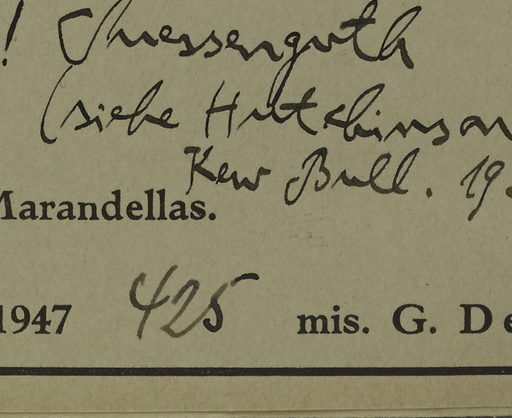 ! Suessenguth
(siehe Hutchinson
Kew Bull. 19
Marandellas.
1947 425 mis. G. De